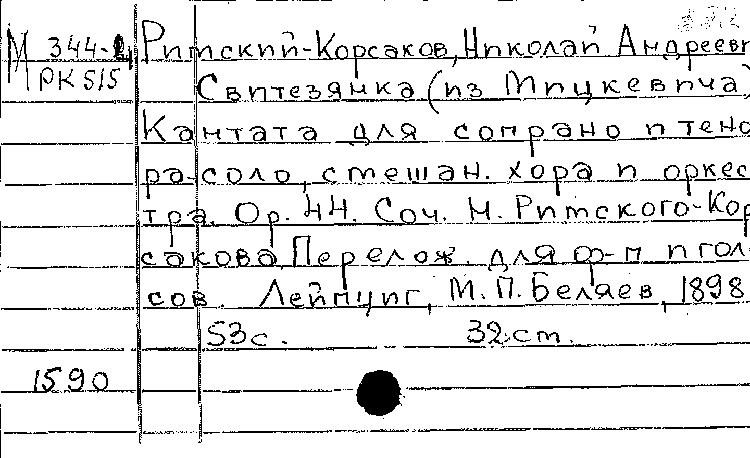 М 344-2 Римский-Корсаков, Николай Андреевич
РК515 Свитезянка (из Мицкевича)
Кантата для сопрано и тено
ра-соло, смешан. хора и оркес
тра. Ор. 44. Соч. Н. Римского-Кор
сакова. Перелож. для ф-п и гол
сов. Лейпциг, М. П. Беляев, 1898
53с. 32 ст.
1590